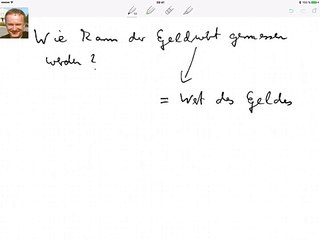 Wie kann der Geldwert gemessen
werden?
= Wert des Geldes